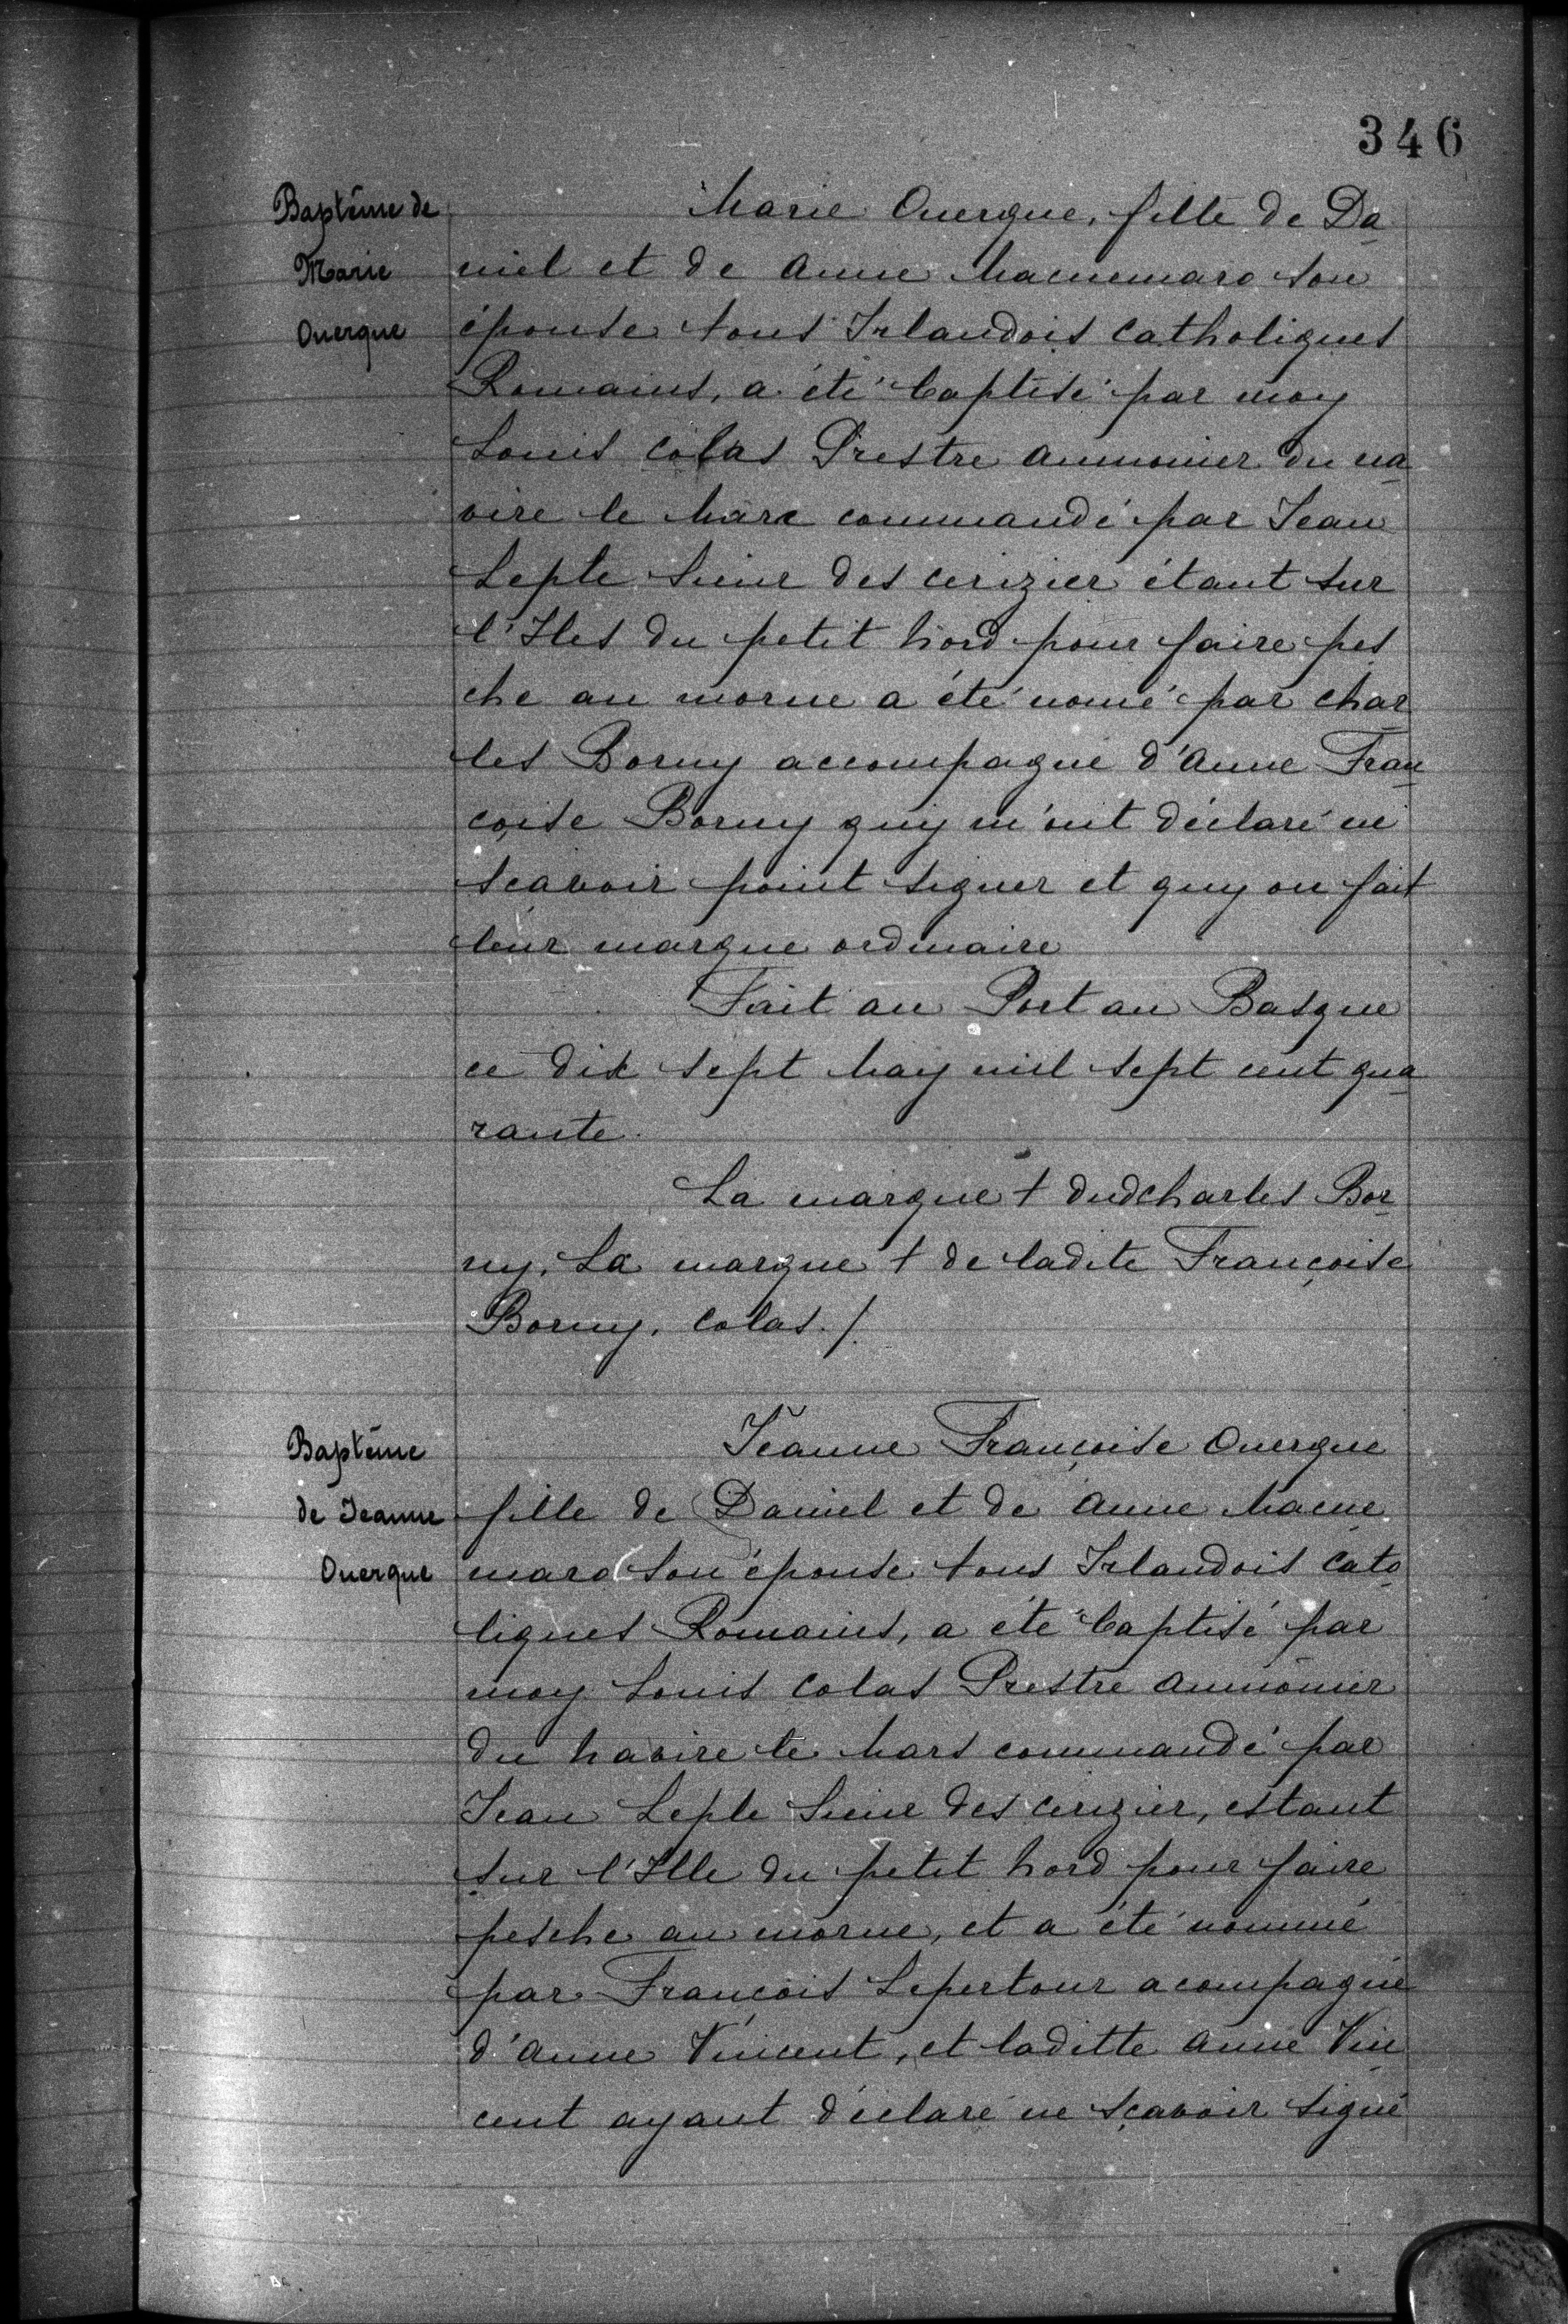 346
Baptême de
Marie
Ouerque
Marie Ouerque, fille de Da
niel et de Anne Macnemaro son
épouse tous Irlandois Catholiques
Romains, a été baptisé par moy
Louis Colas Prestre aumonier du na
vire le Marc commandé par Jean
Leple Sieur des cerizier étant sur
l'Iles du petit Nord pour faire pes
che au morue a été nomé par char
les Borny accompagné d'Anne Fran
coise Borny quy m'ont déclaré ne
scavoir point signer et quy on fait
leur marque ordinaire
Fait au Port au Basque
ce dix sept May mil sept cent qua
rante.
La marque + dud Charles Bor
ny, La marque + de ladite Françoise
Borny. Colas./.
Baptême
de Jeanne
Ouerque
Jeanne Françoise Ouerque
fille de Daniel et de Anne Macne
maro son épouse tous Irlandois Cato
liques Romains, a été baptisé par
moy Louis Colas Prestre aumônier
du Navire le Mars commandé par
Jean Leple Sieur des cerizier, estant
sur l'Ille du petit Nord pour faire
pesche au morue, et a été nommé
par François Lepertour acompagné
d'Anne Vincent, et laditte Anne Vin
cent ayant déclaré ne sçavoir signé